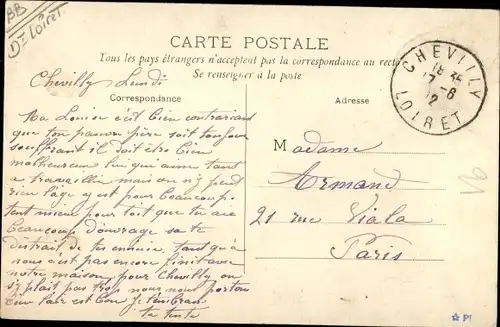 BB
Dt Loiret
CARTE POSTALE
Tous les pays étrangers n'acceptent pas la correspondance au recto
Se renseigner à la poste
CHEVILLY
18 35
17-6
12
LOIRET
Chevilly Lundi
Correspondance
Adresse
Ma Louise c'est bien contrariant
que ton pauvre père soit toujours
souffrant il doit être bien
malheureux lui qui aime tant
a travailler mais on n'y peut
rien l'âge y est pour beaucoup
tant mieux pour toit que tu aie
beaucoup d'ouvrage sa te
distrait de tes ennuie, tant qu'à
nous c'est pas encore finit avec
notre maison, pour Chevilly on
s'y plait pas trop nous nous porton
bien l'air est bon je t'embrasse
ta tente
Madame
Armand
21 rue Viala
Paris
91
PI